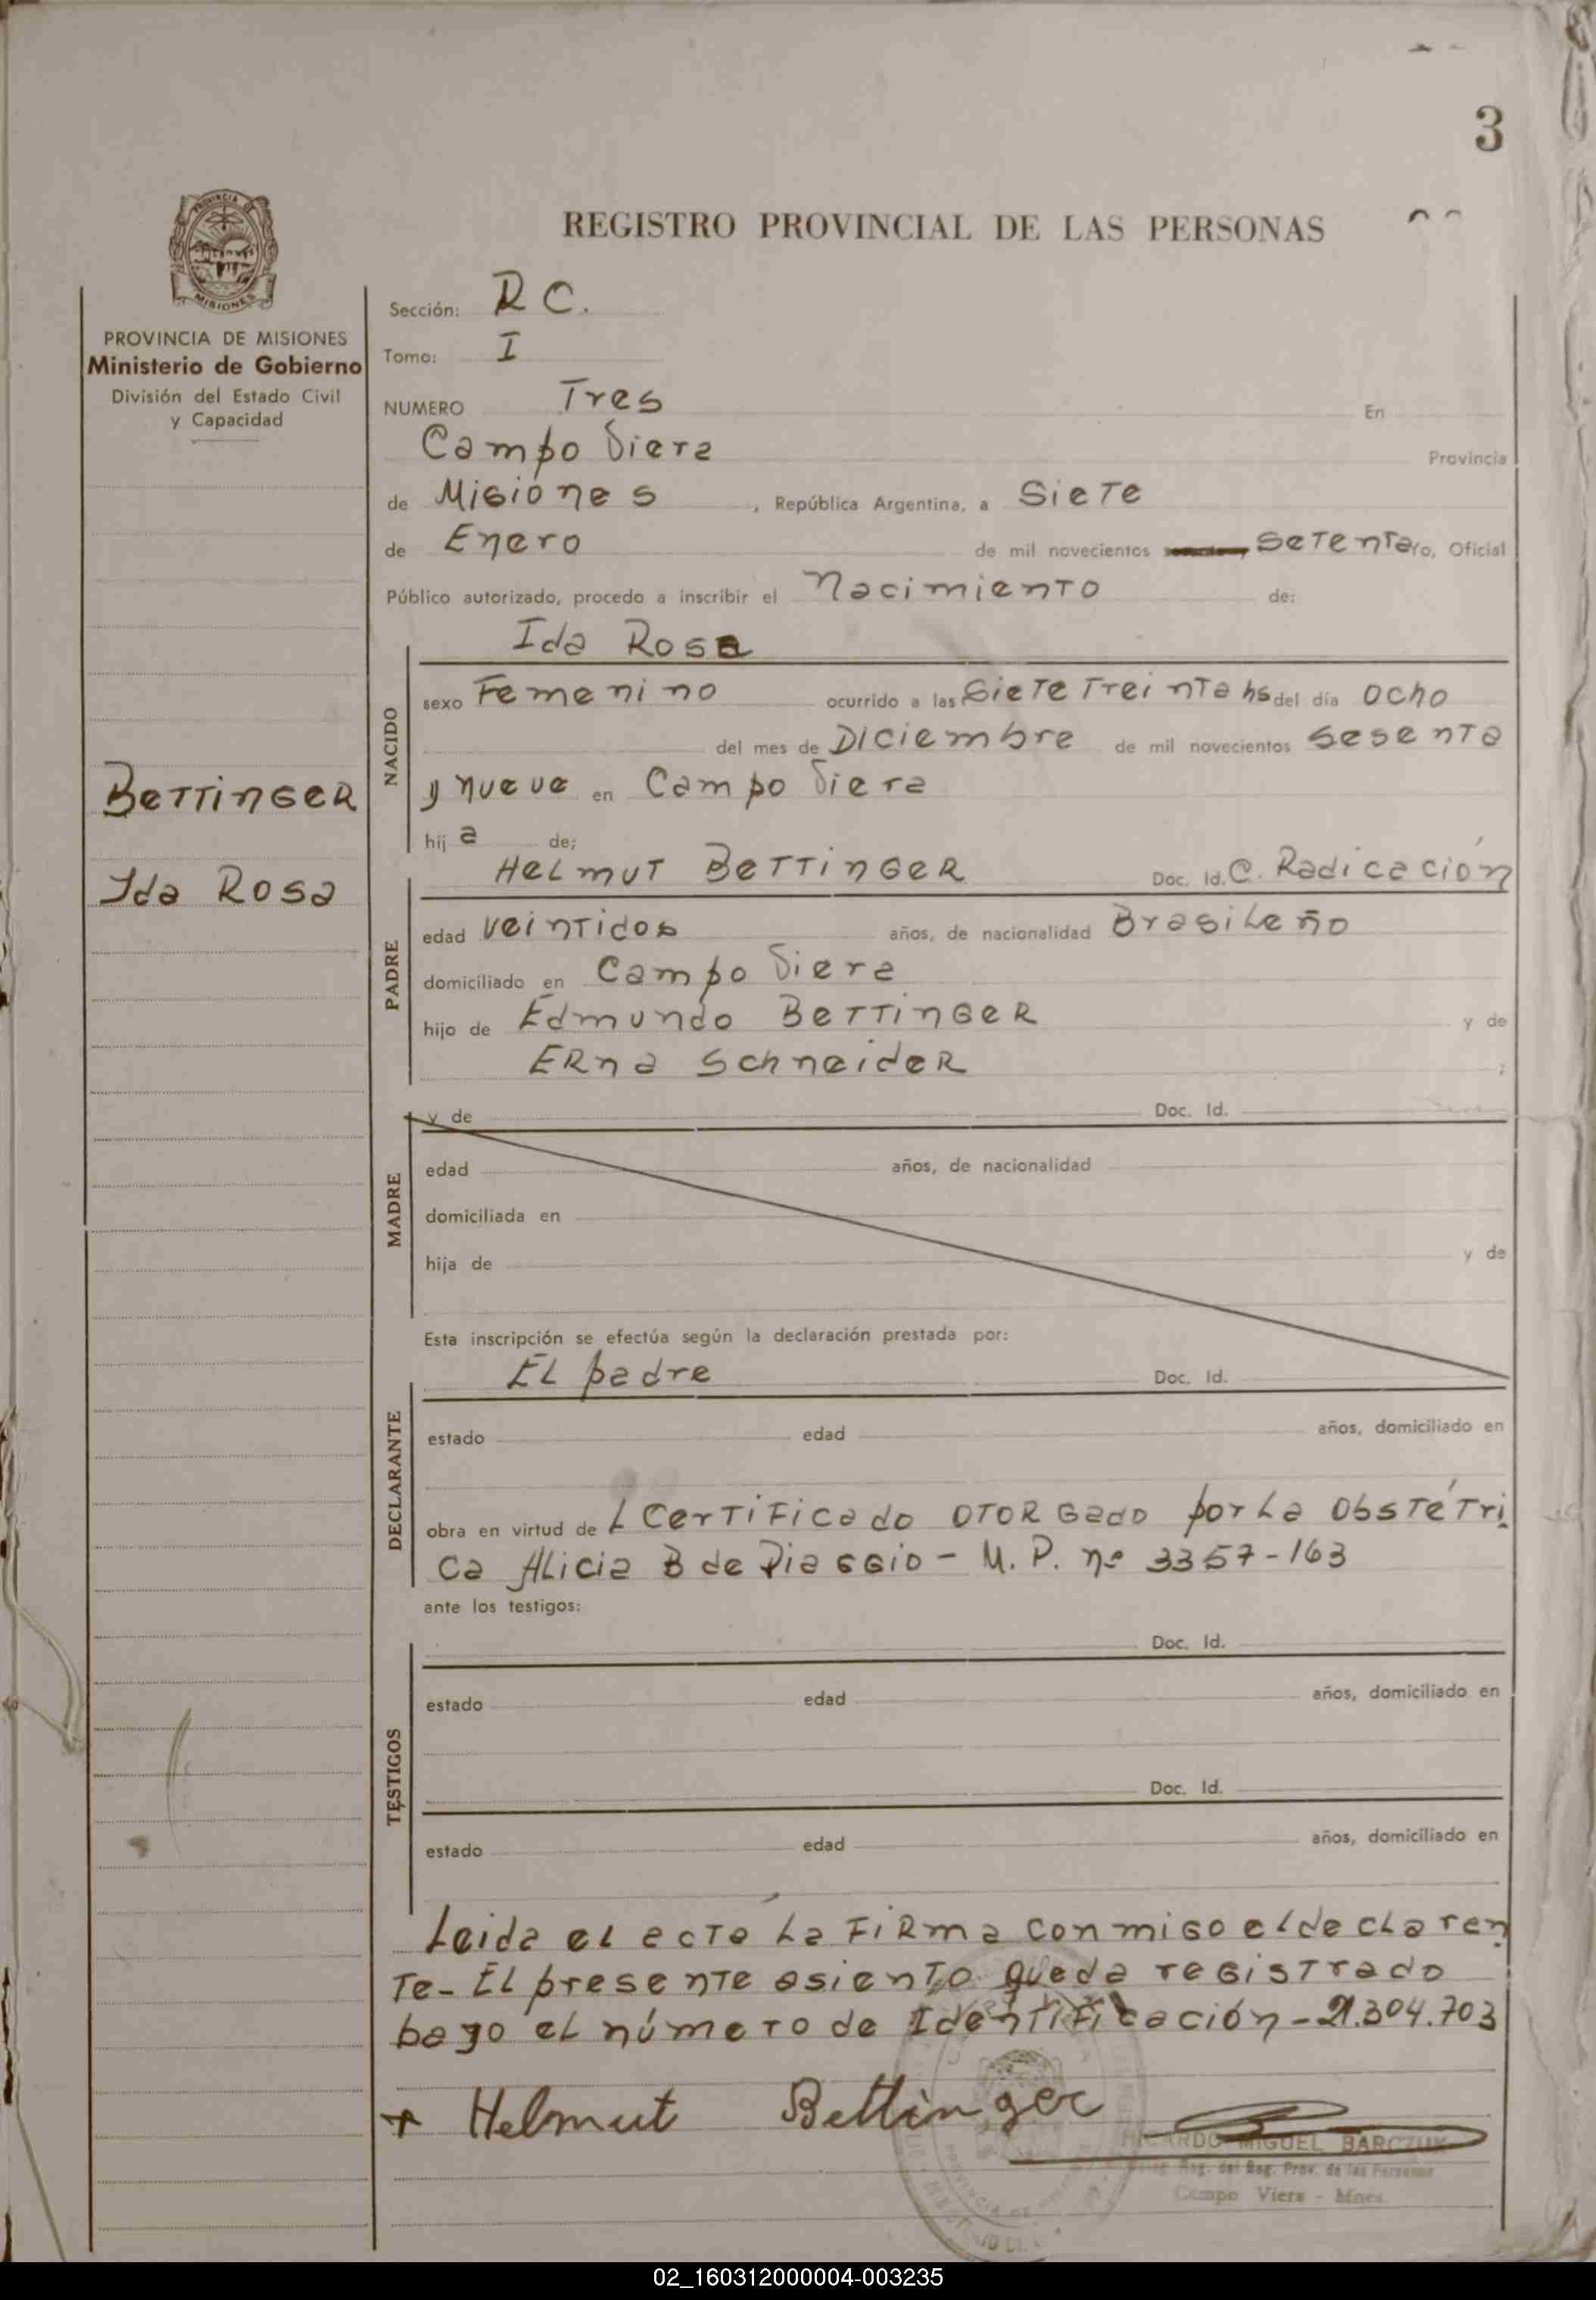 3
REGISTRO PROVINCIAL DE LAS PERSONAS
PROVINCIA DE
MISIONES
PROVINCIA DE MISIONES
Ministerio de Gobierno
División del Estado Civil
y Capacidad
Bettinger
Ida Rosa
Sección: R C.
Tomo: I
NUMERO Tres En
Campo Viera Provincia
de Misiones, República Argentina, a Siete
de Enero de mil novecientos Setenta yo, Oficial
Público autorizado, procedo a inscribir el Nacimiento de:
Ida Rosa
NACIDO
sexo Femenino ocurrido a las Siete Treinta hs del día ocho
del mes de Diciembre de mil novecientos Sesenta
y nueve en Campo Viera
hij a de;
Helmut Bettinger Doc. Id. C. Radicación
PADRE
edad veintidos años, de nacionalidad Brasileño
domiciliado en Campo Viera
hijo de Edmundo Bettinger y de
Erna Schneider ;
y de Doc. Id.
MADRE
edad años, de nacionalidad
domiciliada en
hija de y de
Esta inscripción se efectúa según la declaración prestada por:
El padre Doc. Id.
DECLARANTE
estado edad años, domiciliado en
obra en virtud de L Certificado otorgado por La obstétri
ca Alicia B de Piaggio - M. P. nº 3357-163
ante los testigos:
Doc. Id.
TESTIGOS
estado edad años, domiciliado en
Doc. Id.
estado edad años, domiciliado en
Leida el acta La firma conmigo el declaran
te - El presente asiento queda registrado
bajo el número de Identificación - 21.304.703
Helmut Bettinger
RICARDO MIGUEL BARCZUK
Reg. del Reg. Prov. de las Personas
Campo Viera - Mnes.
02_160312000004-003235